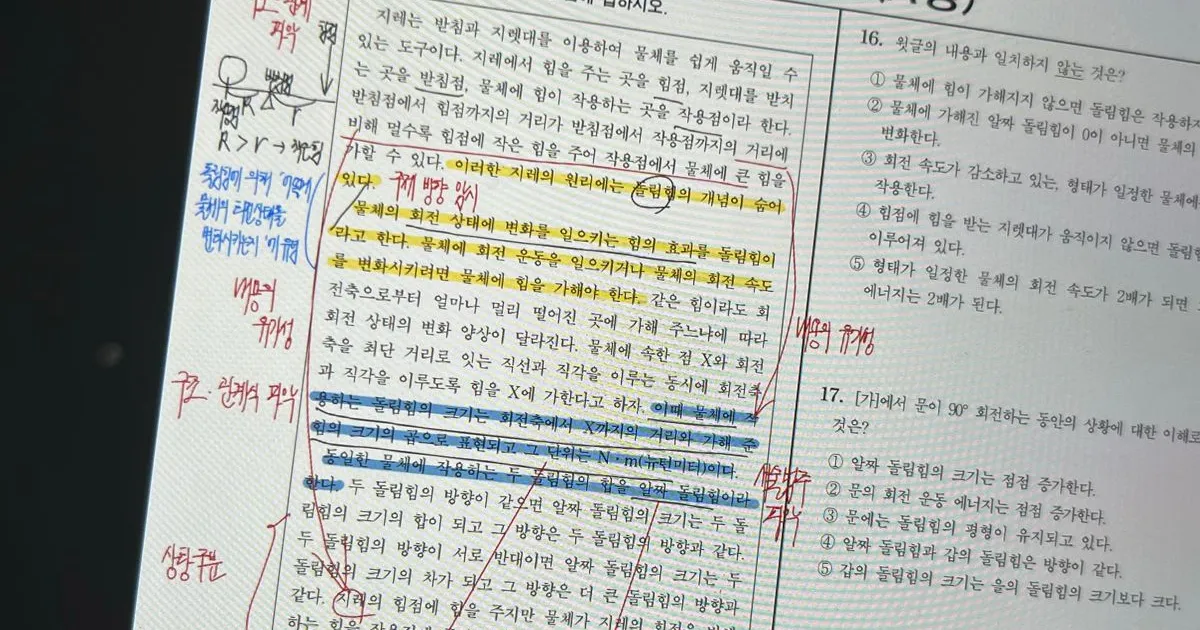 답하시오.
지레는 받침과 지렛대를 이용하여 물체를 쉽게 움직일 수
있는 도구이다. 지레에서 힘을 주는 곳을 힘점, 지렛대를 받치
는 곳을 받침점, 물체에 힘이 작용하는 곳을 작용점이라 한다.
받침점에서 힘점까지의 거리가 받침점에서 작용점까지의 거리에
비해 멀수록 힘점에 작은 힘을 주어 작용점에서 물체에 큰 힘을
가할 수 있다. 이러한 지레의 원리에는 돌림힘의 개념이 숨어
있다.
물체의 회전 상태에 변화를 일으키는 힘의 효과를 돌림힘이
라고 한다. 물체에 회전 운동을 일으키거나 물체의 회전 속도
를 변화시키려면 물체에 힘을 가해야 한다. 같은 힘이라도 회
전축으로부터 얼마나 멀리 떨어진 곳에 가해 주느냐에 따라
회전 상태의 변화 양상이 달라진다. 물체에 속한 점 X와 회전
축을 최단 거리로 잇는 직선과 직각을 이루는 동시에 회전축
과 직각을 이루도록 힘을 X에 가한다고 하자. 이때 물체에 작
용하는 돌림힘의 크기는 회전축에서 X까지의 거리와 가해 준
힘의 크기의 곱으로 표현되고 그 단위는 N·m(뉴턴미터)이다.
동일한 물체에 작용하는 두 돌림힘의 합을 알짜 돌림힘이라
한다. 두 돌림힘의 방향이 같으면 알짜 돌림힘의 크기는 두 돌
림힘의 크기의 합이 되고 그 방향은 두 돌림힘의 방향과 같다.
두 돌림힘의 방향이 서로 반대이면 알짜 돌림힘의 크기는 두
돌림힘의 크기의 차가 되고 그 방향은 더 큰 돌림힘의 방향과
같다. 지레의 힘점에 힘을 주지만 물체가 지레의 회전을
하는 힘을
파악
힘점
받침점
작용점
R
r
R > r → 작은힘
내용의
유기성
구조·관계식 파악
상황구분
주제 방향 암시
내용의 유기성
파악
16. 윗글의 내용과 일치하지 않는 것은?
① 물체에 힘이 가해지지 않으면 돌림힘은 작용하지
② 물체에 가해진 알짜 돌림힘이 0이 아니면 물체의
변화한다.
③ 회전 속도가 감소하고 있는, 형태가 일정한 물체에
작용한다.
④ 힘점에 힘을 받는 지렛대가 움직이지 않으면
이루어져 있다.
⑤ 형태가 일정한 물체의 회전 속도가 2배가 되면
에너지는 2배가 된다.
17. [가]에서 문이 90° 회전하는 동안의 상황에 대한 이해로
것은?
① 알짜 돌림힘의 크기는 점점 증가한다.
② 문의 회전 운동 에너지는 점점 증가한다.
③ 문에는 돌림힘의 평형이 유지되고 있다.
④ 알짜 돌림힘과 갑의 돌림힘은 방향이 같다.
⑤ 갑의 돌림힘의 크기는 을의 돌림힘의 크기보다 크다.